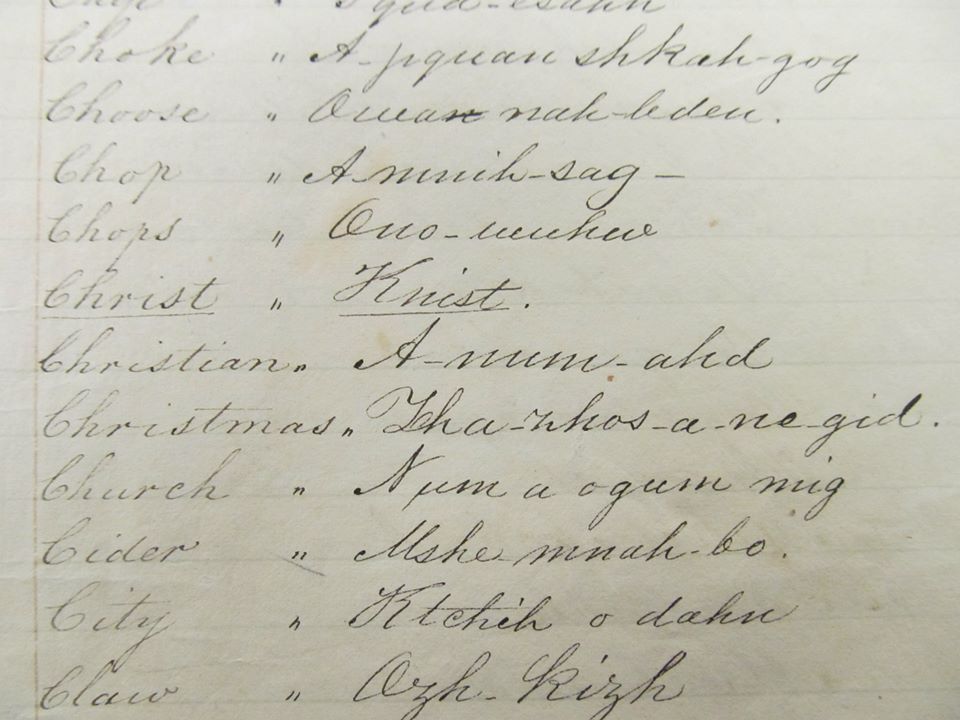 Choke " A-pquan shkah-gog
Choose " nah-beden.
Chop " A-mnih-sag-
Chops "
Christ " Knist.
Christian " A-num-ahd
Christmas " Zha-zhos-a-ne-gid.
Church " Num a ogum mig
Cider " Mshe-mnah-bo.
City " Ktchih o dahn
Claw " Ozh-kizh